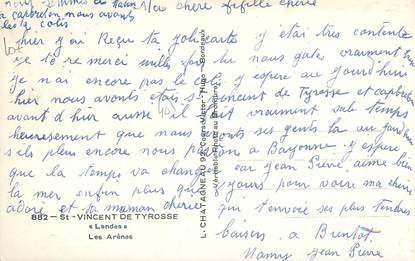 nous sommes de
a capbreton nous avons
les 2 colis
ma chère fifille chérie
hier j'ai Reçu ta jolie carte j'y étai très contente
je te re merci mille fois tu nous gates vraiment trop
je n'ai encore pas le colis j'y espere au jourd'hui
hier nous avonts étais St-vincent de Tyrosse et capbreton
avant d'hier ausse il fait vraiment sale temps
heuresement que nous avonts ses gents la au jourd'hui
s'ils pleu encore nous a Bayonne. j'y espere
que la temps va changé car Jean Piere aime bien
la mer enfin plus que pour voire ma cherie
adore et ta maman cherie qui t'envoie ses plus tendres
baisers, a Bientot.
Mamy Jean Piere
882 - St-VINCENT DE TYROSSE
« Landes »
Les Arènes
L. CHATAGNEAU 99, Cours Victor Hugo - Bordeaux
Véritable Photo au Bromure